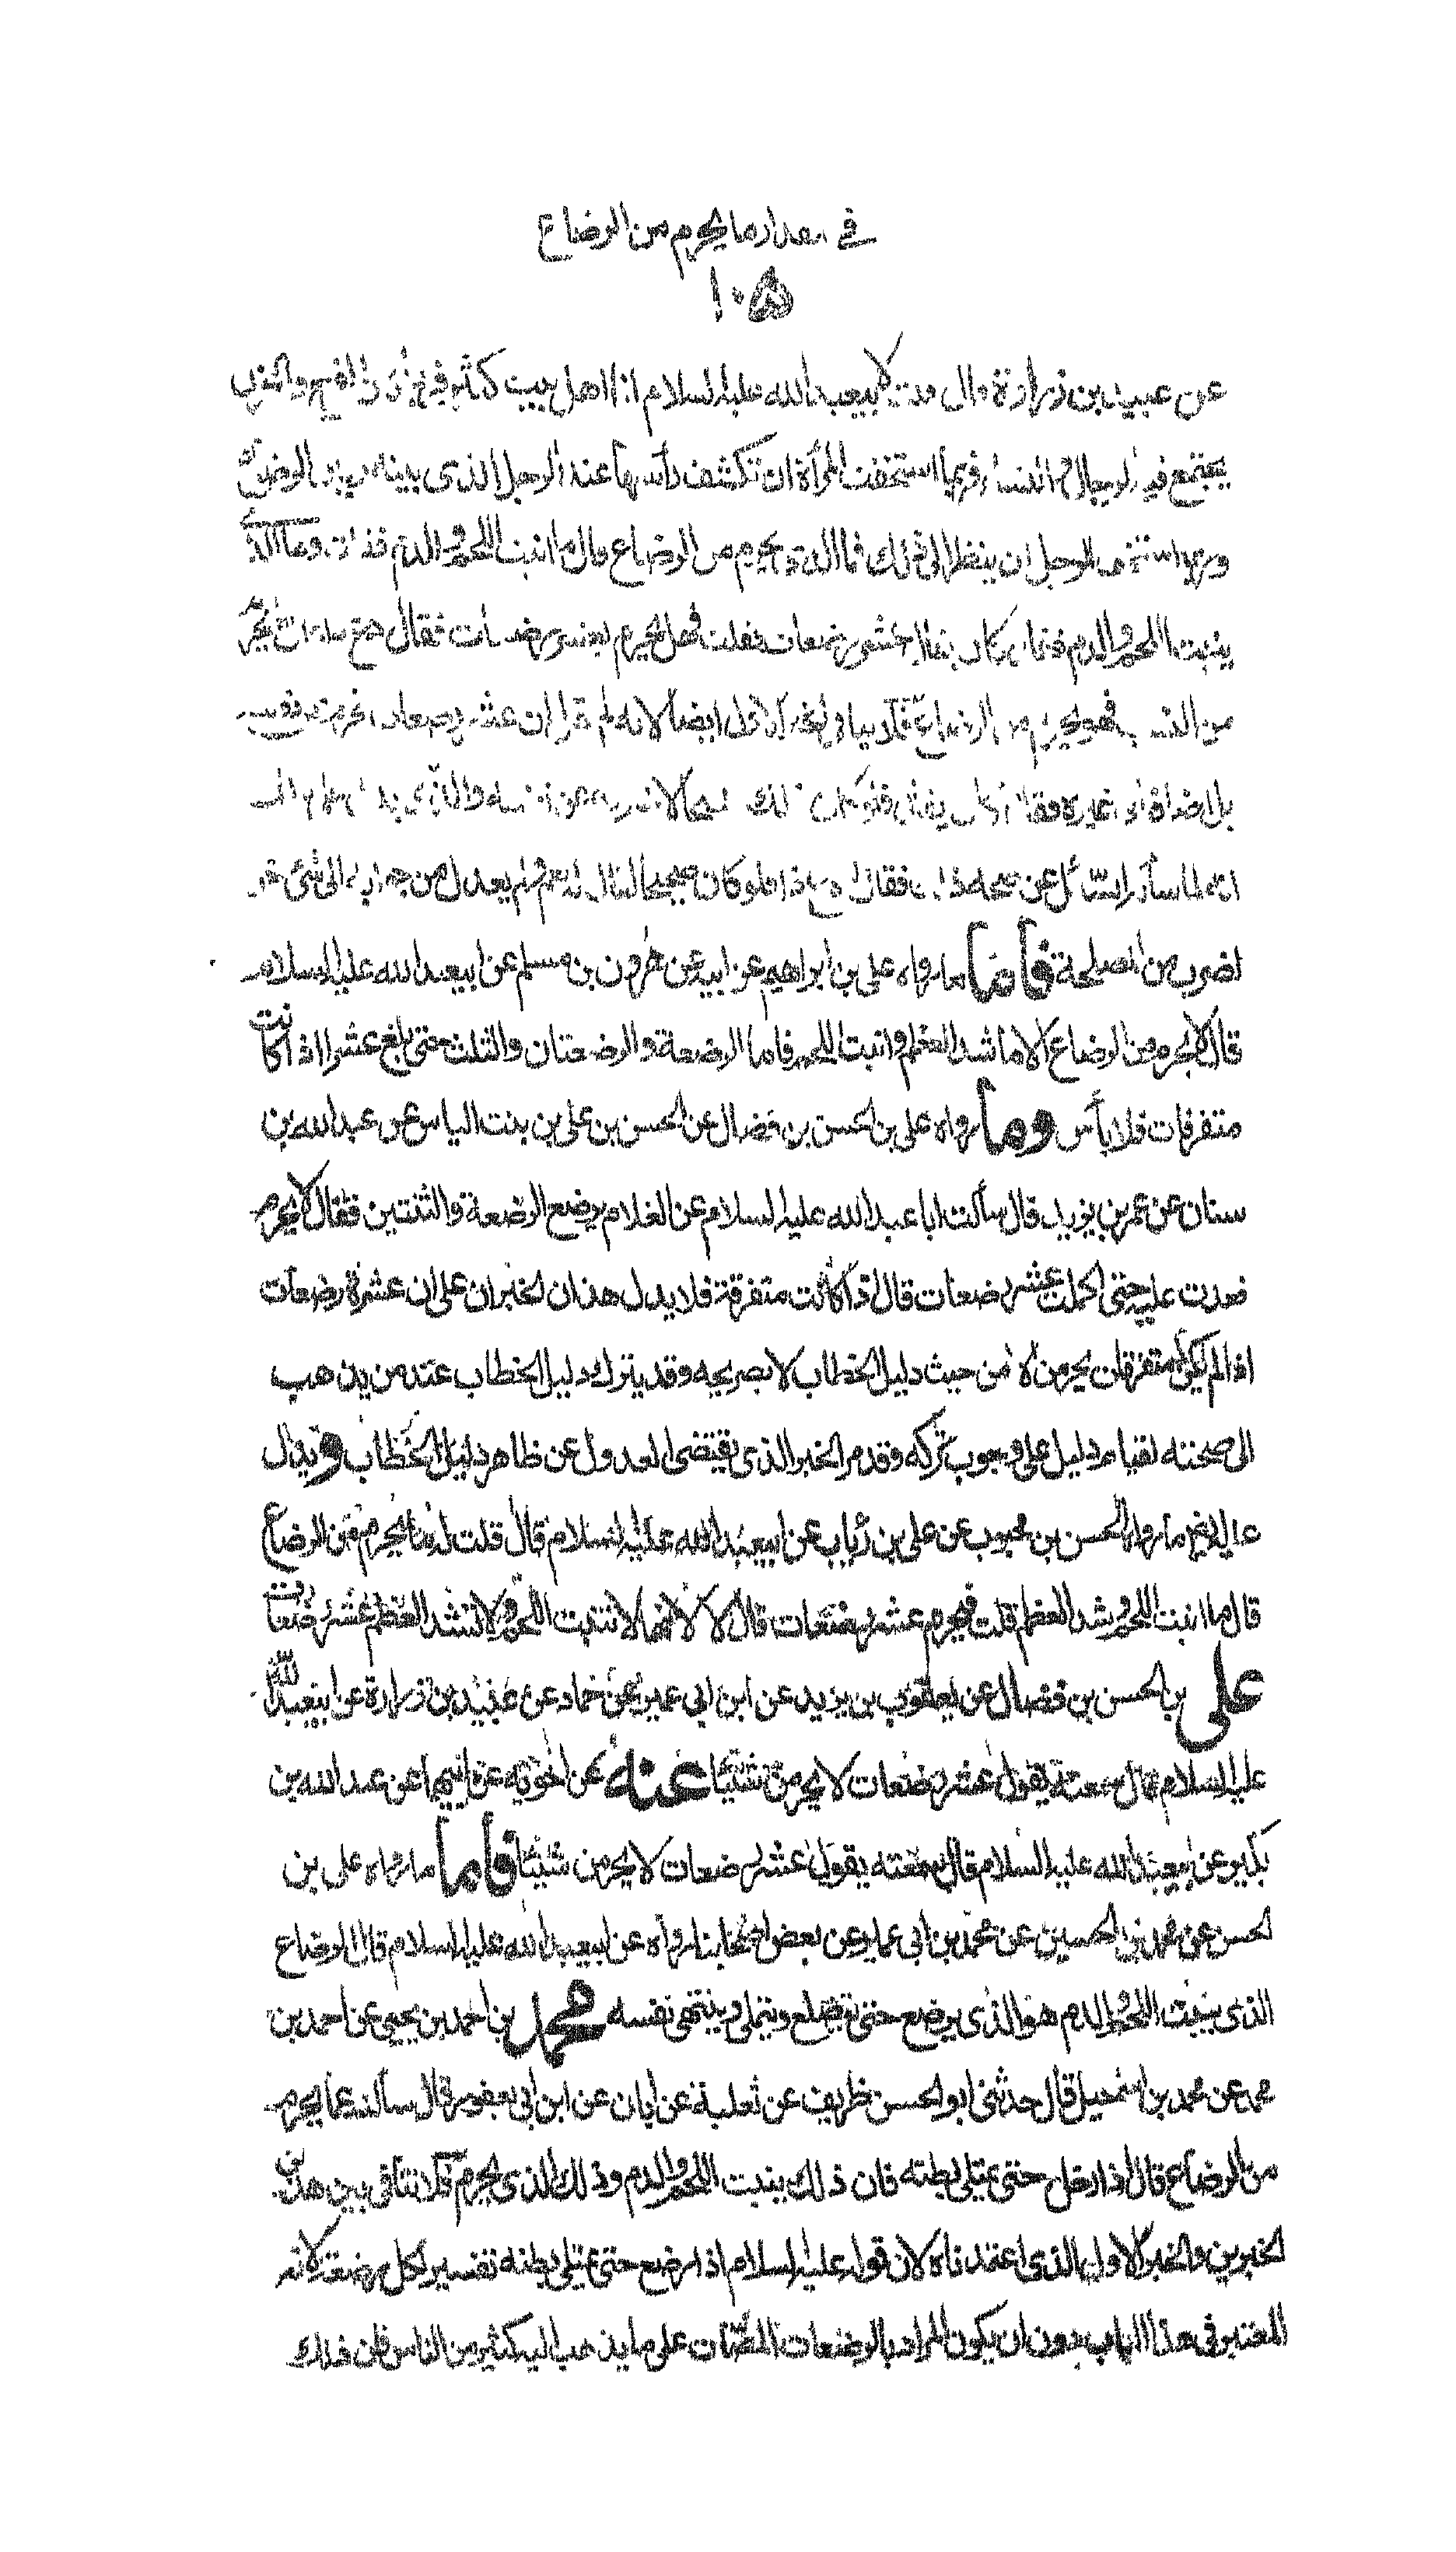 في مقدار ما يحرم من الرضاع
١٠٥
عن عبيد بن زرارة قال قلت لابيعبد الله عليه السلام انا اهل بيت كثير
يجتمع فيه الرجال والنساء فربما استخفت المرأة ان تكشف رأسها عند الرجل الذي بينه وبينها الرضاع
وربما استخف الرجل ان ينظر الى ذلك فما الذي يحرم من الرضاع قال ما انبت اللحم والدم فقلت وما الذي
ينبت اللحم والدم فقال كان يقال عشر رضعات فقلت فهل يحرم بعشر رضعات فقال دع ذا ما يحرم
من النسب فهو يحرم من الرضاع فلا ينافي الخبر الاول ايضا لانه لم يقل ان عشر رضعات تحرم
بل اضافه الى غيره فقال كان يقال فلو كان ذلك صحيحا
انه لما سأله السائل عن صحة ذلك فقال دع ذا فلو كان صحيحا لقال له نعم ولم يعدل من جوابه الى شئ
لضرب من المصلحة فاما ما رواه علي بن ابراهيم عن ابيه عن هرون بن مسلم عن ابيعبد الله عليه السلام
قال لا يحرم من الرضاع الا ما شد العظم وانبت اللحم فاما الرضعة والرضعتان والثلث حتى بلغ عشرا اذا كانت
متفرقات فلا بأس وما رواه علي بن الحسن بن فضال عن الحسن بن علي بن بنت الياس عن عبد الله بن
سنان عن عمر بن يزيد قال سألت ابا عبد الله عليه السلام عن الغلام يرضع الرضعة والثنتين فقال لا يحرم
فعددت عليه حتى اكملت عشر رضعات قال اذا كانت متفرقة فلا يدل هذان الخبران على ان عشرة رضعات
اذا لم يكن متفرقات يحرمن لا من حيث دليل الخطاب لا بصريحه وقد يترك دليل الخطاب عند من يذهب
الى صحته لقيام دليل على وجوب تركه وقد مر الخبر الذي يقتضي العدول عن ظاهر دليل الخطاب ويدل
عليه ايضا ما رواه الحسن بن محبوب عن علي بن رئاب عن ابيعبد الله عليه السلام قال قلت له ما يحرم من الرضاع
قال ما انبت اللحم وشد العظم قلت فيحرم عشر رضعات قال لا لانها لا تنبت اللحم ولا تشد العظم عشر رضعات
علي بن الحسن بن فضال عن يعقوب بن يزيد عن ابن ابي عمير عن حماد عن عبيد بن زرارة عن ابيعبد الله
عليه السلام قال سمعته يقول عشر رضعات لا يحرمن شيئا عنه عن اخويه عن ابيهما عن عبد الله بن
بكير عن ابيعبد الله عليه السلام قال سمعته يقول عشر رضعات لا يحرمن شيئا فاما ما رواه علي بن
الحسن عن محمد بن الحسين عن محمد بن ابي عمير عن بعض اصحابنا رواه عن ابيعبد الله عليه السلام قال الرضاع
الذي ينبت اللحم والدم هو الذي يرضع حتى يتضلع ويتملى وينتهي نفسه محمد بن احمد بن يحيى عن احمد بن
محمد عن محمد بن اسمعيل قال حدثني ابو الحسن ظريف عن ثعلبة عن ابان عن ابن ابي يعفور قال سألته عما يحرم
من الرضاع قال اذا رضع حتى يمتلي بطنه فان ذلك ينبت اللحم والدم وذلك الذي يحرم فلا تنافي بين هذين
الخبرين والخبر الاول الذي اعتمدناه لان قوله عليه السلام اذا رضع حتى يمتلي بطنه تفسير لكل رضعة لانه
المعتبر في هذا الباب دون ان يكون المراد بالرضعات المصات على ما يذهب اليه كثير من الناس فان ذلك